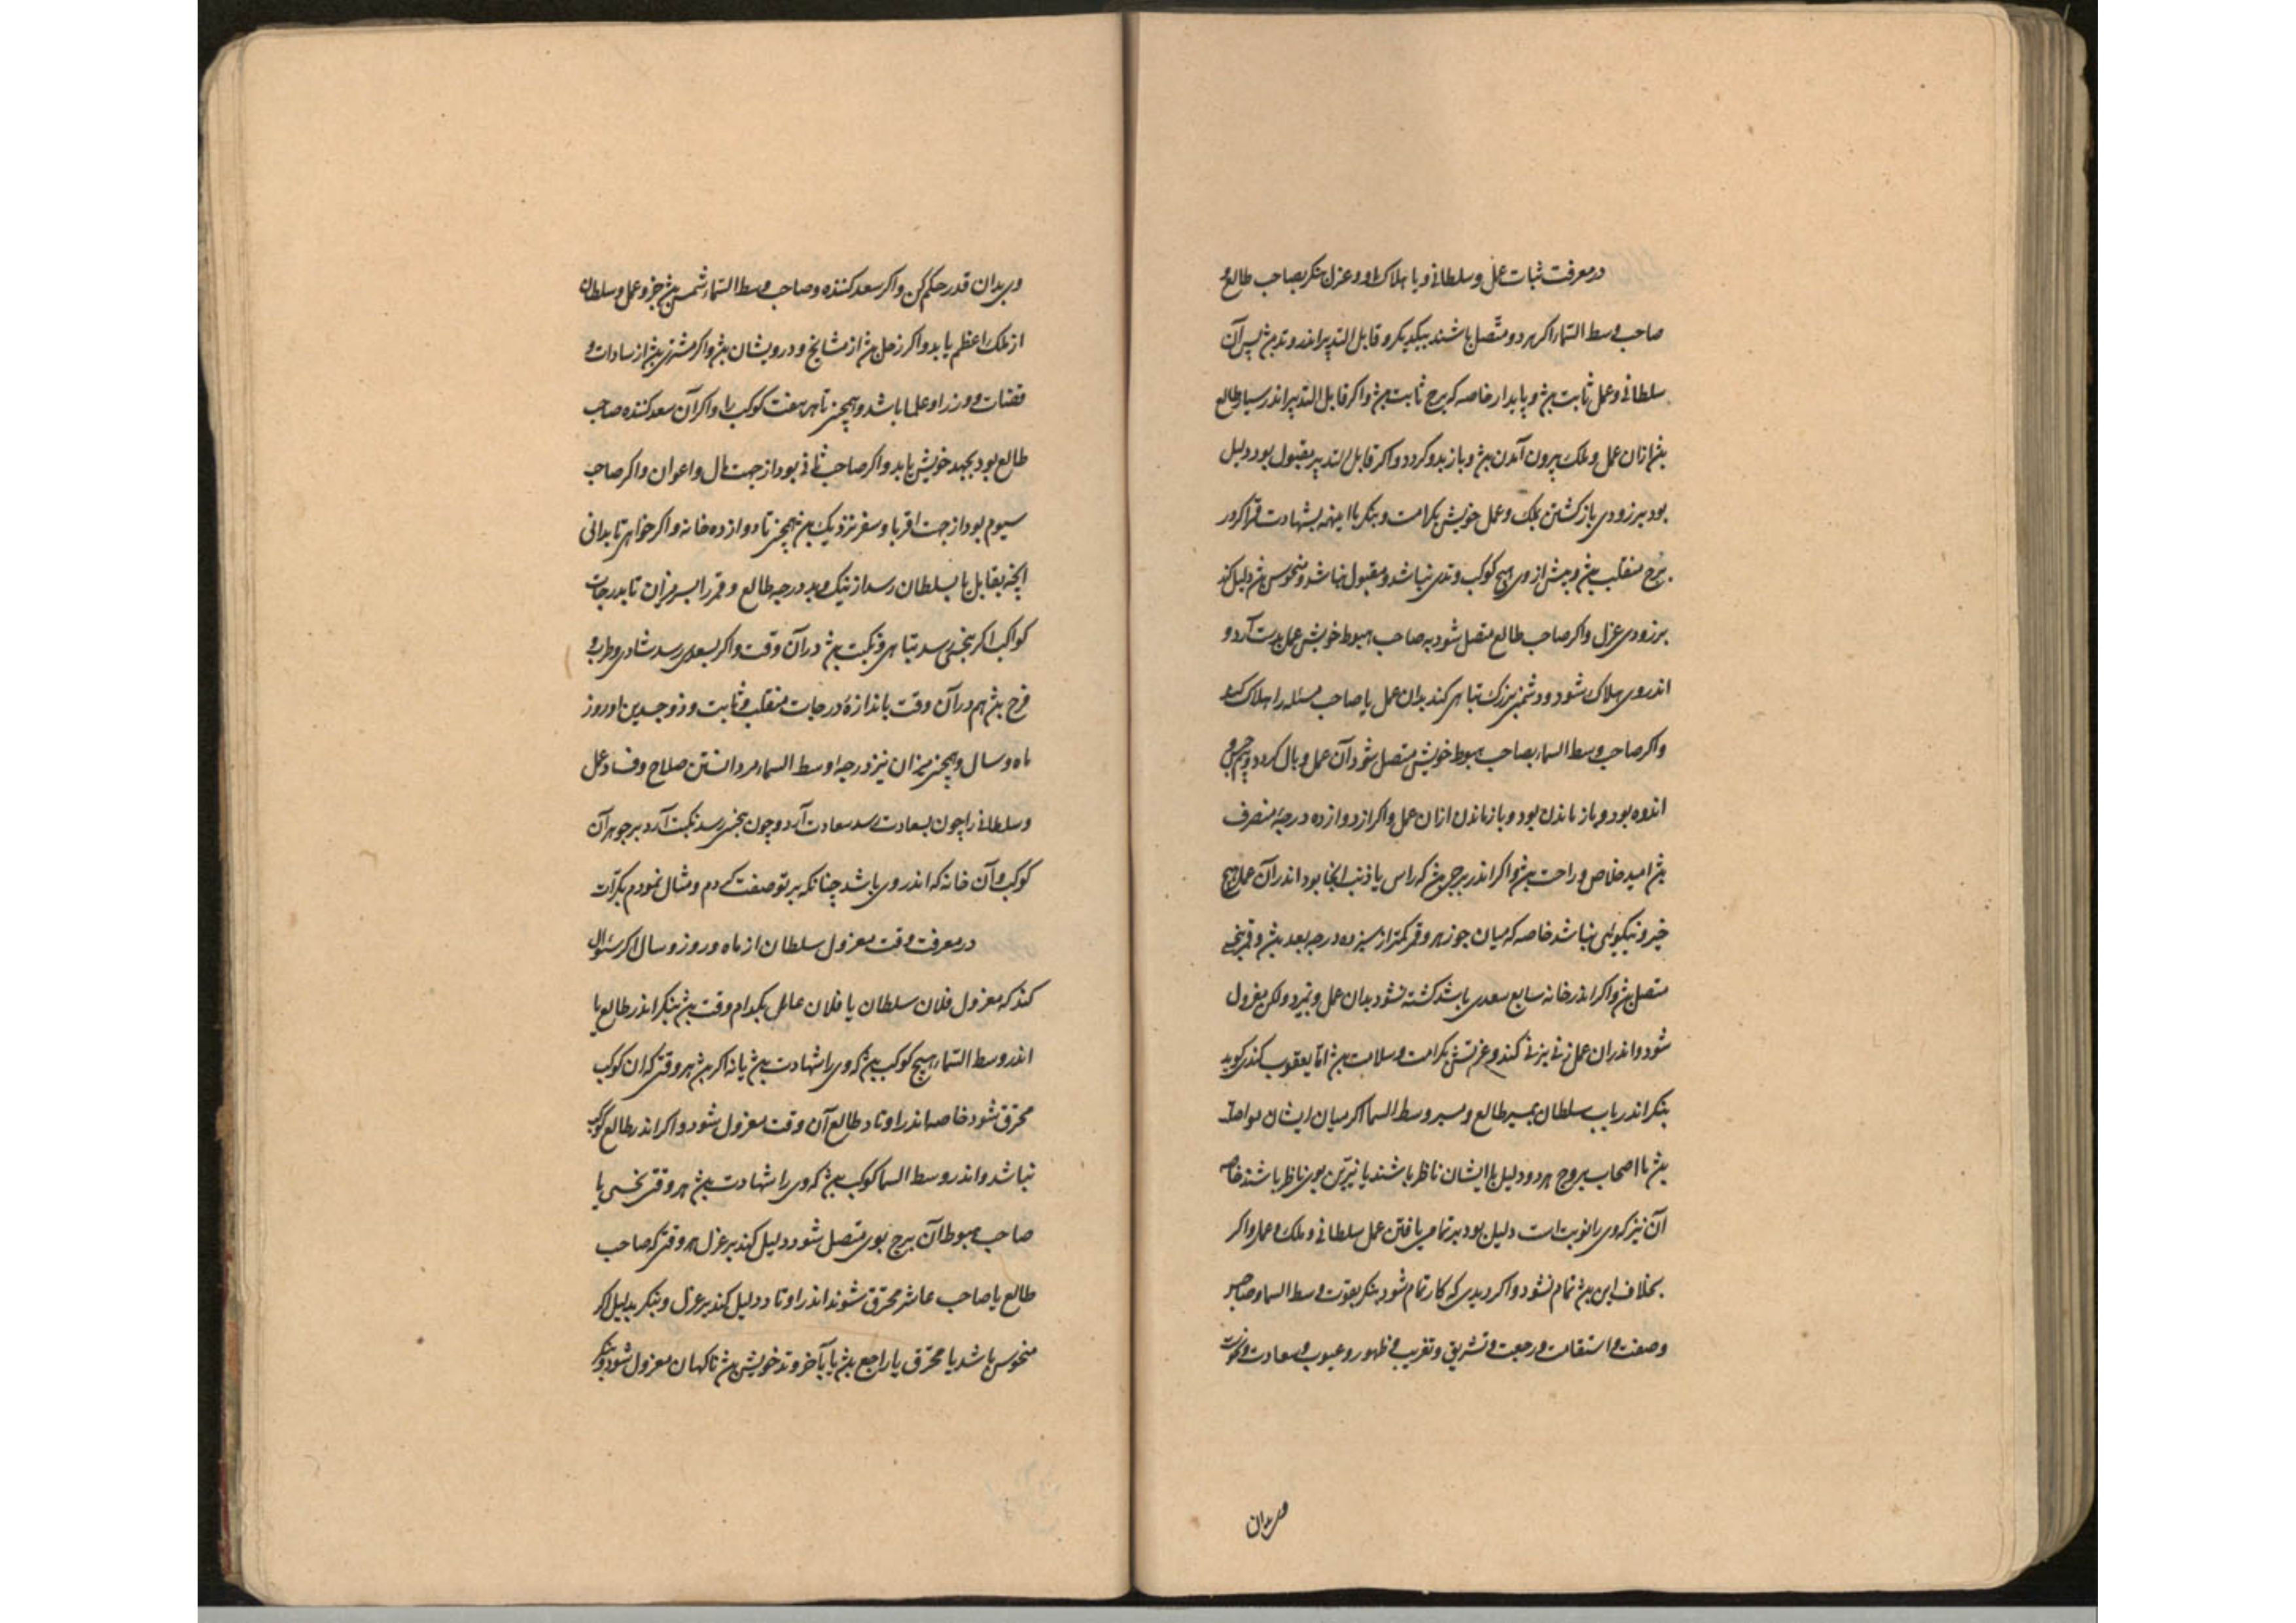 در معرفت ثبات عمل و سلطانی و یا هلاک او و عزل بنکر بصاحب طالع و
صاحب وسط السّماء اکر هر دو متّصل باشند بیکدیکر و قابل التدبیر اندر وتد بیٚ پس آن
سلطانی و عمل ثابت بیٚ و پایدار خاصه که برج ثابت بیٚ و اکر قابل التدبیر اندر سیار طالع
بیٚ ازان عمل و ملک بیرون آمدن بیٚ و باز بدو کردد و اکر قابل التدبیر مقبول بود دلیل
بود بر زودی باز کشتن بملک و عمل خویش بکرامت و بنکر با اینهمه بشهادت قمر اکر در
برج منقلب بیٚ و بیش از وی هیچ کوکب وتدی نباشد و مقبول نباشد و منحوس بیٚ دلیل کند
بر زودی عزل و اکر صاحب طالع متصل شود به صاحب هبوط خویش عمل بدست آرد و
اندر وی هلاک شود و دشمنی بزرک تباهی کند بدان عمل یا صاحب مسئله را هلاک کند
و اکر صاحب وسط السماء بصاحب هبوط خویش متصل شود آن عمل وبال کردد و
اندوه بود و باز ماندن بود و باز ماندن ازان عمل و اکر از دوازده درجه منصرف
بیٚ امید خلاص و راحت بیٚ و اکر اندر برجی بیٚ که راس یا ذنب آنجا بود اندر آن عمل هیچ
خیر و نیکوئی نباشد خاصه که میان جوزهر و قمر کمتر از سیزده درجه بعد بیٚ و قمر بنحسی
متصل بیٚ و اکر اندر خانه سابع سعدی باشد کشته نشود بدان عمل و نمیرد ولکن معزول
شود و اندران عمل زنی بزنی کند و عزلتش بکرامت و سلامت بیٚ امّا یعقوب کندی کوید
بنکر اندر باب سلطان بمسیر طالع و مسیر وسط السما اکر میان ایشان
بیٚ با اصحاب بروج هر دو دلیل با ایشان ناظر باشند یا نیّرین بوی ناظر باشند خاصه
آن نیّر که وی را نوبت است دلیل بود بر تمامی یافتن عمل سلطانی و ملک و عمل و اکر
بخلاف این بیٚ تمام نشود و اکر دیدی که کار تمام شود بنکر بقوت وسط السما و صاحبش
وصفت و استقامت و رجعت و تشریق و تغریب و ظهور و عیوب و سعادت و نحوست
وی بدان
وی بدان قدر حکم کن و اکر سعد کننده و صاحب وسط السّماء شمس بیٚ جز و عمل و سلطان
از ملک اعظم یابد و اکر زحل بیٚ از مشایخ و درویشان بیٚ و اکر مشتری بیٚ از سادات و
قضات و وزرا و علما باشد و همچنین تا هر هفت کوکب را و اکر آن سعد کننده صاحب
طالع بود بجهد خویش یابد و اکر صاحب ثانی بود از جهت مال و اعوان و اکر صاحب
سیوم بود از جهت اقربا و سفر نزدیک بیٚ همچنین تا دوازده خانه و اکر خواهی تا بدانی
آنچه بقابل یا بسلطان رسد از نیک و بد درجه طالع و قمر را بسر میران تا بدرجات
کواکب اکر بنحس رسد تباهی و نکبت بیٚ در آن وقت و اکر بسعدی رسد شادی و طرب و
فرح بیٚ هم در آن وقت باندازهٔ درجات منقلب و ثابت و ذو جسدین او روز
ماه و سال و همچنین میزان نیز درجه وسط السماء مر دانستن صلاح و فساد عمل
و سلطانی را چون بسعادت رسد سعادت آرد و چون بنحس رسد نکبت آرد بر جوهر آن
کوکب و آن خانه که اندر وی باشد چنانکه بر تو صفت کردم و مثال نمودم بکرّات
در معرفت وقت معزول سلطان از ماه و روز و سال اکر سئوال
کند که معزول فلان سلطان یا فلان عامل بکدام وقت بیٚ بنکر اندر طالع یا
اندر وسط السّماء هیچ کوکب بیٚ که وی را شهادت بیٚ یا نه اکر بیٚ هر وقتی که آن کوکب
محترق شود خاصه اندر اوتاد طالع آن وقت معزول شود و اکر اندر طالع کوکب
نباشد و اندر وسط السما کوکب بیٚ که وی را شهادت بیٚ هر وقتی نحسی یا
صاحب هبوط آن برج بوی متصل شود دلیل کند بر عزل هر وقتی که صاحب
طالع یا صاحب عاشر محترق شوند اندر اوتاد دلیل کند بر عزل و بنکر بدلیل اکر
منحوس باشد یا محترق یا راجع بیٚ یا بآخر وتد خویش بیٚ ناکهان معزول شود و بنکر